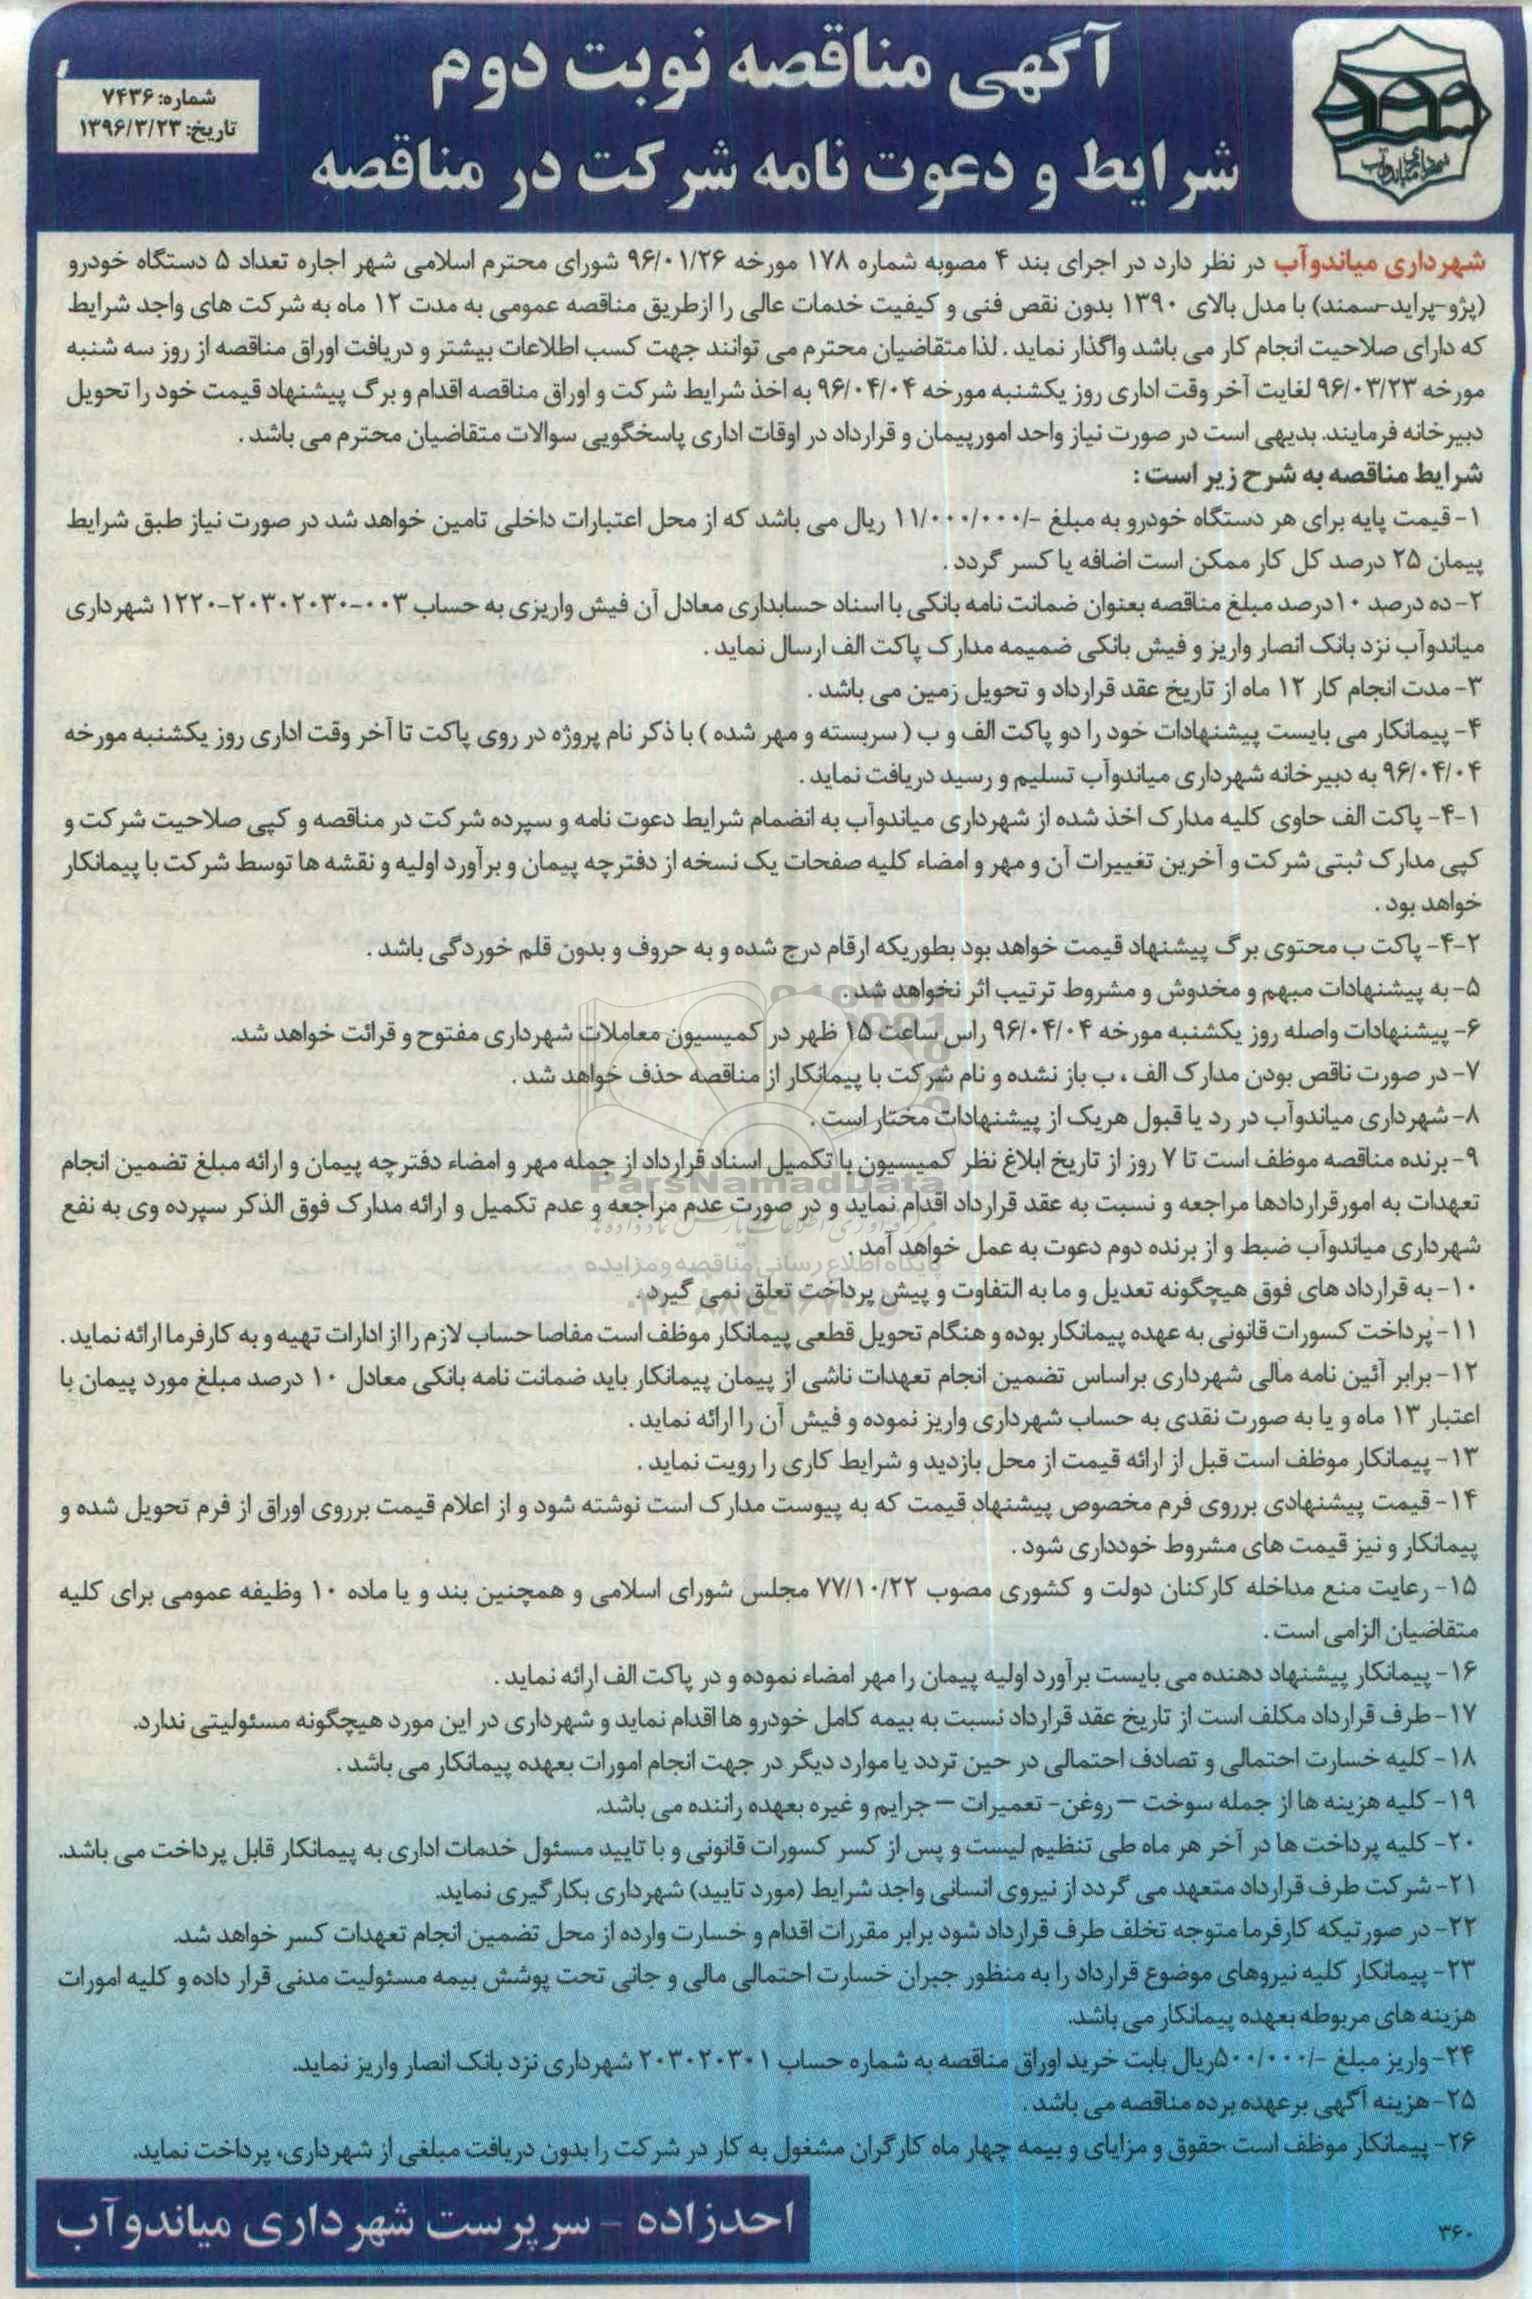 آگهی مناقصه نوبت دوم
شرایط و دعوت نامه شرکت در مناقصه
شماره: ۷۴۳۶
تاریخ: ۱۳۹۶/۳/۲۳
شهرداری میاندوآب
شهرداری میاندوآب در نظر دارد در اجرای بند ۴ مصوبه شماره ۱۷۸ مورخه ۹۶/۰۱/۲۶ شورای محترم اسلامی شهر اجاره تعداد ۵ دستگاه خودرو
(پژو-پراید-سمند) با مدل بالای ۱۳۹۰ بدون نقص فنی و کیفیت خدمات عالی را ازطریق مناقصه عمومی به مدت ۱۲ ماه به شرکت های واجد شرایط
که دارای صلاحیت انجام کار می باشد واگذار نماید . لذا متقاضیان محترم می توانند جهت کسب اطلاعات بیشتر و دریافت اوراق مناقصه از روز سه شنبه
مورخه ۹۶/۰۳/۲۳ لغایت آخر وقت اداری روز یکشنبه مورخه ۹۶/۰۴/۰۴ به اخذ شرایط شرکت و اوراق مناقصه اقدام و برگ پیشنهاد قیمت خود را تحویل
دبیرخانه فرمایند. بدیهی است در صورت نیاز واحد امورپیمان و قرارداد در اوقات اداری پاسخگویی سوالات متقاضیان محترم می باشد .
شرایط مناقصه به شرح زیر است :
۱- قیمت پایه برای هر دستگاه خودرو به مبلغ -/۱۱/۰۰۰/۰۰۰ ریال می باشد که از محل اعتبارات داخلی تامین خواهد شد در صورت نیاز طبق شرایط
پیمان ۲۵ درصد کل کار ممکن است اضافه یا کسر گردد .
۲- ده درصد ۱۰درصد مبلغ مناقصه بعنوان ضمانت نامه بانکی با اسناد حسابداری معادل آن فیش واریزی به حساب ۰۰۳-۲۰۳۰۲۰۳۰-۱۲۲۰ شهرداری
میاندوآب نزد بانک انصار واریز و فیش بانکی ضمیمه مدارک پاکت الف ارسال نماید .
۳- مدت انجام کار ۱۲ ماه از تاریخ عقد قرارداد و تحویل زمین می باشد .
۴- پیمانکار می بایست پیشنهادات خود را دو پاکت الف و ب ( سربسته و مهر شده ) با ذکر نام پروژه در روی پاکت تا آخر وقت اداری روز یکشنبه مورخه
۹۶/۰۴/۰۴ به دبیرخانه شهرداری میاندوآب تسلیم و رسید دریافت نماید .
۴-۱- پاکت الف حاوی کلیه مدارک اخذ شده از شهرداری میاندوآب به انضمام شرایط دعوت نامه و سپرده شرکت در مناقصه و کپی صلاحیت شرکت و
کپی مدارک ثبتی شرکت و آخرین تغییرات آن و مهر و امضاء کلیه صفحات یک نسخه از دفترچه پیمان و برآورد اولیه و نقشه ها توسط شرکت با پیمانکار
خواهد بود .
۴-۲- پاکت ب محتوی برگ پیشنهاد قیمت خواهد بود بطوریکه ارقام درج شده و به حروف و بدون قلم خوردگی باشد .
۵- به پیشنهادات مبهم و مخدوش و مشروط ترتیب اثر نخواهد شد .
۶- پیشنهادات واصله روز یکشنبه مورخه ۹۶/۰۴/۰۴ راس ساعت ۱۵ ظهر در کمیسیون معاملات شهرداری مفتوح و قرائت خواهد شد.
۷- در صورت ناقص بودن مدارک الف ، ب باز نشده و نام شرکت با پیمانکار از مناقصه حذف خواهد شد .
۸- شهرداری میاندوآب در رد یا قبول هریک از پیشنهادات مختار است .
۹- برنده مناقصه موظف است تا ۷ روز از تاریخ ابلاغ نظر کمیسیون با تکمیل اسناد قرارداد از جمله مهر و امضاء دفترچه پیمان و ارائه مبلغ تضمین انجام
ParsNamadData
تعهدات به امورقراردادها مراجعه و نسبت به عقد قرارداد اقدام نماید و در صورت عدم مراجعه و عدم تکمیل و ارائه مدارک فوق الذکر سپرده وی به نفع
شهرداری میاندوآب ضبط و از برنده دوم دعوت به عمل خواهد آمد .
پایگاه اطلاع رسانی مناقصه و مزایده
۱۰- به قرارداد های فوق هیچگونه تعدیل و ما به التفاوت و پیش پرداخت تعلق نمی گیرد .
۱۱- پرداخت کسورات قانونی به عهده پیمانکار بوده و هنگام تحویل قطعی پیمانکار موظف است مفاصا حساب لازم را از ادارات تهیه و به کارفرما ارائه نماید .
۱۲- برابر آئین نامه مالی شهرداری براساس تضمین انجام تعهدات ناشی از پیمان پیمانکار باید ضمانت نامه بانکی معادل ۱۰ درصد مبلغ مورد پیمان با
اعتبار ۱۳ ماه و یا به صورت نقدی به حساب شهرداری واریز نموده و فیش آن را ارائه نماید .
۱۳- پیمانکار موظف است قبل از ارائه قیمت از محل بازدید و شرایط کاری را رویت نماید .
۱۴- قیمت پیشنهادی برروی فرم مخصوص پیشنهاد قیمت که به پیوست مدارک است نوشته شود و از اعلام قیمت برروی اوراق از فرم تحویل شده و
پیمانکار و نیز قیمت های مشروط خودداری شود .
۱۵- رعایت منع مداخله کارکنان دولت و کشوری مصوب ۷۷/۱۰/۲۲ مجلس شورای اسلامی و همچنین بند و یا ماده ۱۰ وظیفه عمومی برای کلیه
متقاضیان الزامی است .
۱۶- پیمانکار پیشنهاد دهنده می بایست برآورد اولیه پیمان را مهر امضاء نموده و در پاکت الف ارائه نماید .
۱۷- طرف قرارداد مکلف است از تاریخ عقد قرارداد نسبت به بیمه کامل خودرو ها اقدام نماید و شهرداری در این مورد هیچگونه مسئولیتی ندارد.
۱۸- کلیه خسارت احتمالی و تصادف احتمالی در حین تردد یا موارد دیگر در جهت انجام امورات بعهده پیمانکار می باشد .
۱۹- کلیه هزینه ها از جمله سوخت – روغن- تعمیرات – جرایم و غیره بعهده راننده می باشد.
۲۰- کلیه پرداخت ها در آخر هر ماه طی تنظیم لیست و پس از کسر کسورات قانونی و با تایید مسئول خدمات اداری به پیمانکار قابل پرداخت می باشد.
۲۱- شرکت طرف قرارداد متعهد می گردد از نیروی انسانی واجد شرایط (مورد تایید) شهرداری بکارگیری نماید.
۲۲- در صورتیکه کارفرما متوجه تخلف طرف قرارداد شود برابر مقررات اقدام و خسارت وارده از محل تضمین انجام تعهدات کسر خواهد شد.
۲۳- پیمانکار کلیه نیروهای موضوع قرارداد را به منظور جبران خسارت احتمالی مالی و جانی تحت پوشش بیمه مسئولیت مدنی قرار داده و کلیه امورات
هزینه های مربوطه بعهده پیمانکار می باشد.
۲۴- واریز مبلغ -/۵۰۰/۰۰۰ریال بابت خرید اوراق مناقصه به شماره حساب ۲۰۳۰۲۰۳۰۱ شهرداری نزد بانک انصار واریز نماید.
۲۵- هزینه آگهی برعهده برده مناقصه می باشد .
۲۶- پیمانکار موظف است حقوق و مزایای و بیمه چهار ماه کارگران مشغول به کار در شرکت را بدون دریافت مبلغی از شهرداری، پرداخت نماید.
احدزاده - سرپرست شهرداری میاندوآب
۳۶۰